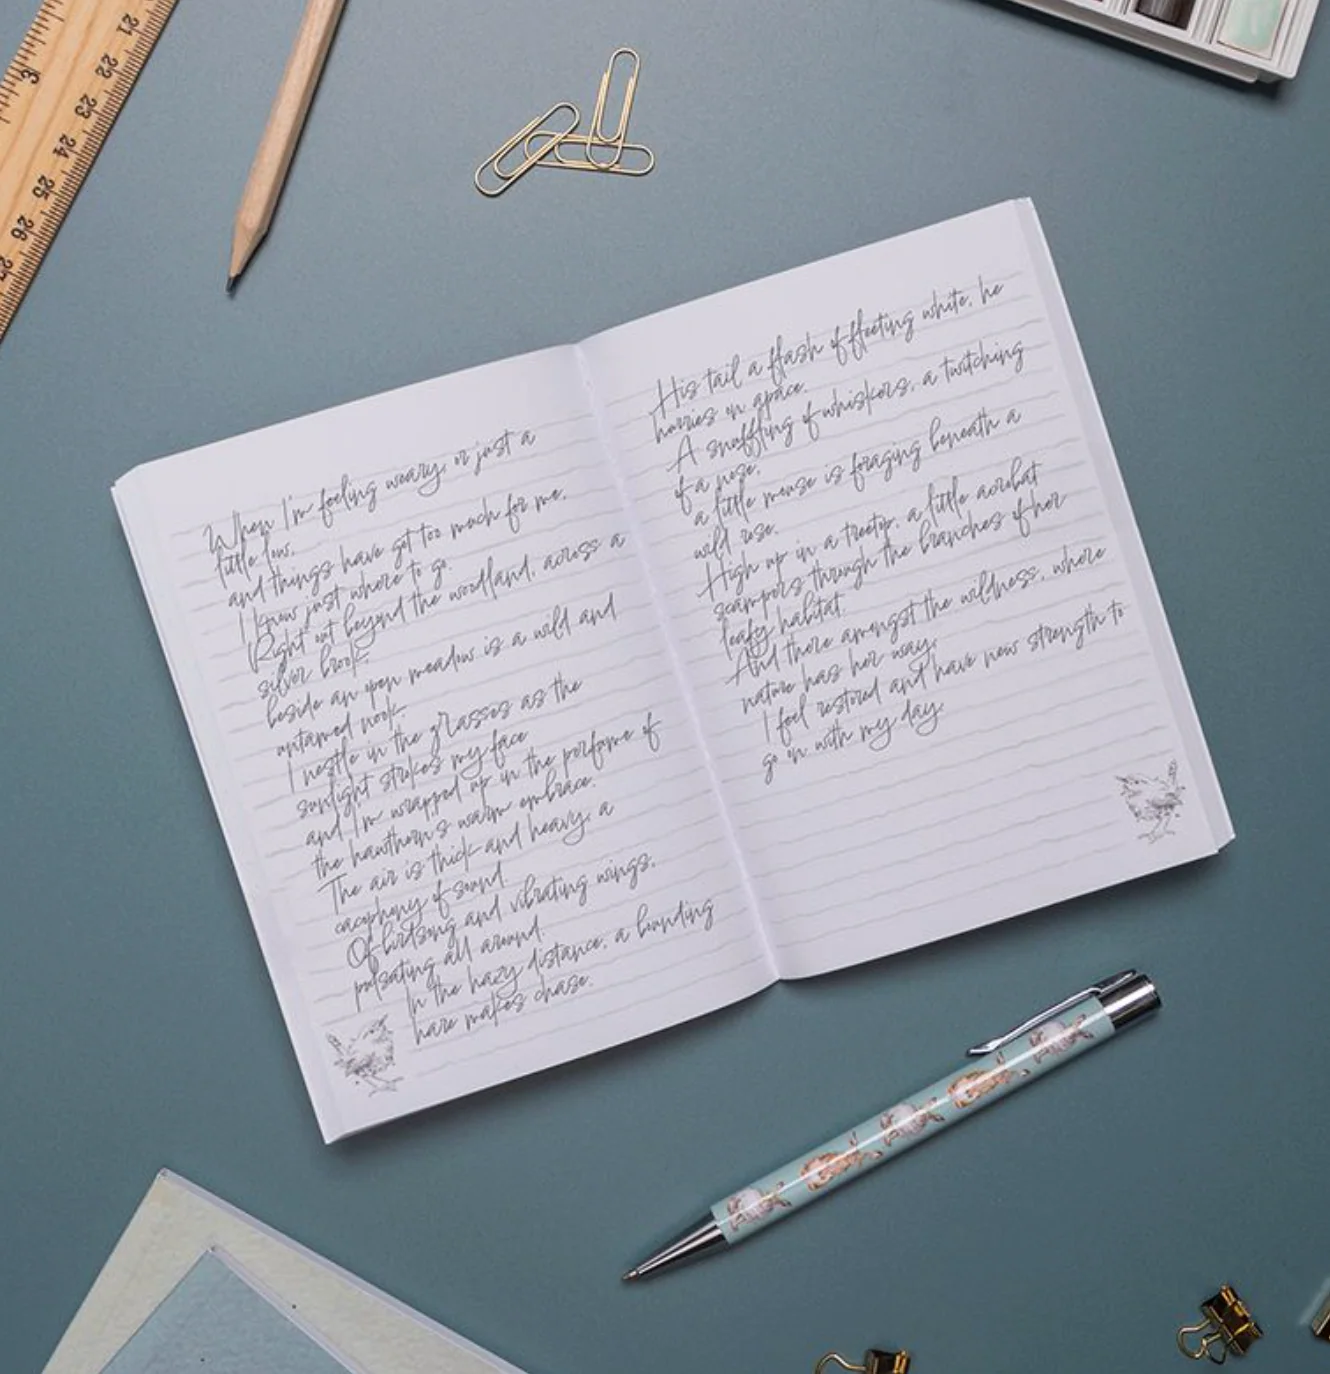 When I'm feeling weary, or just a
little low,
and things have got too much for me,
I know just where to go.
Right out beyond the woodland, across a
silver brook,
beside an open meadow is a wild and
untamed nook
I nestle in the grasses as the
sunlight strokes my face
and I'm wrapped up in the perfume of
the hawthorn's warm embrace.
The air is thick and heavy, a
cacophony of sound.
Of birdsong and vibrating wings,
pulsating all around.
In the hazy distance, a bounding
hare makes chase.
His tail a flash of fleeting white, he
hurries on apace.
A snuffling of whiskers, a twitching
of a nose,
a little mouse is foraging beneath a
wild rose.
High up in a treetop, a little acrobat
scampers through the branches of her
leafy habitat.
And there amongst the wildness, where
nature has her way,
I feel restored and have new strength to
go on with my day.
3
21
22
23
24
25
26
27